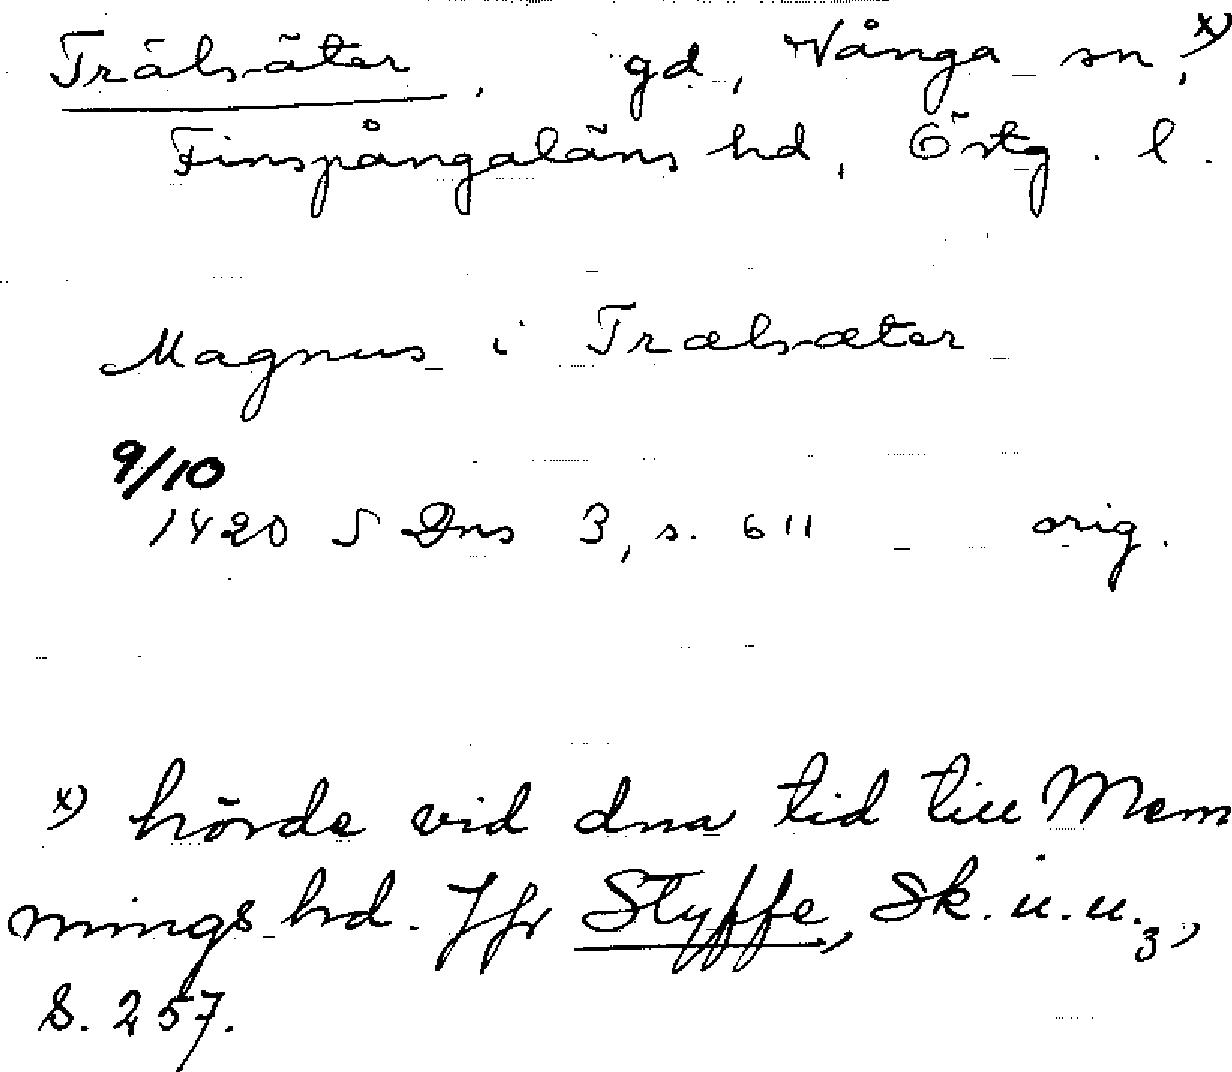 Trälsäter, gd, Vånga sn, x)
Finspångaläns hd, Östg. l.
Magnus i Trælsæter
9/10
1420 S Dns 3, s. 611 orig.
x) hörde vid dna tid till Mem
mings hd. Jfr Styffe, Sk. u. u. 3,
S. 257.